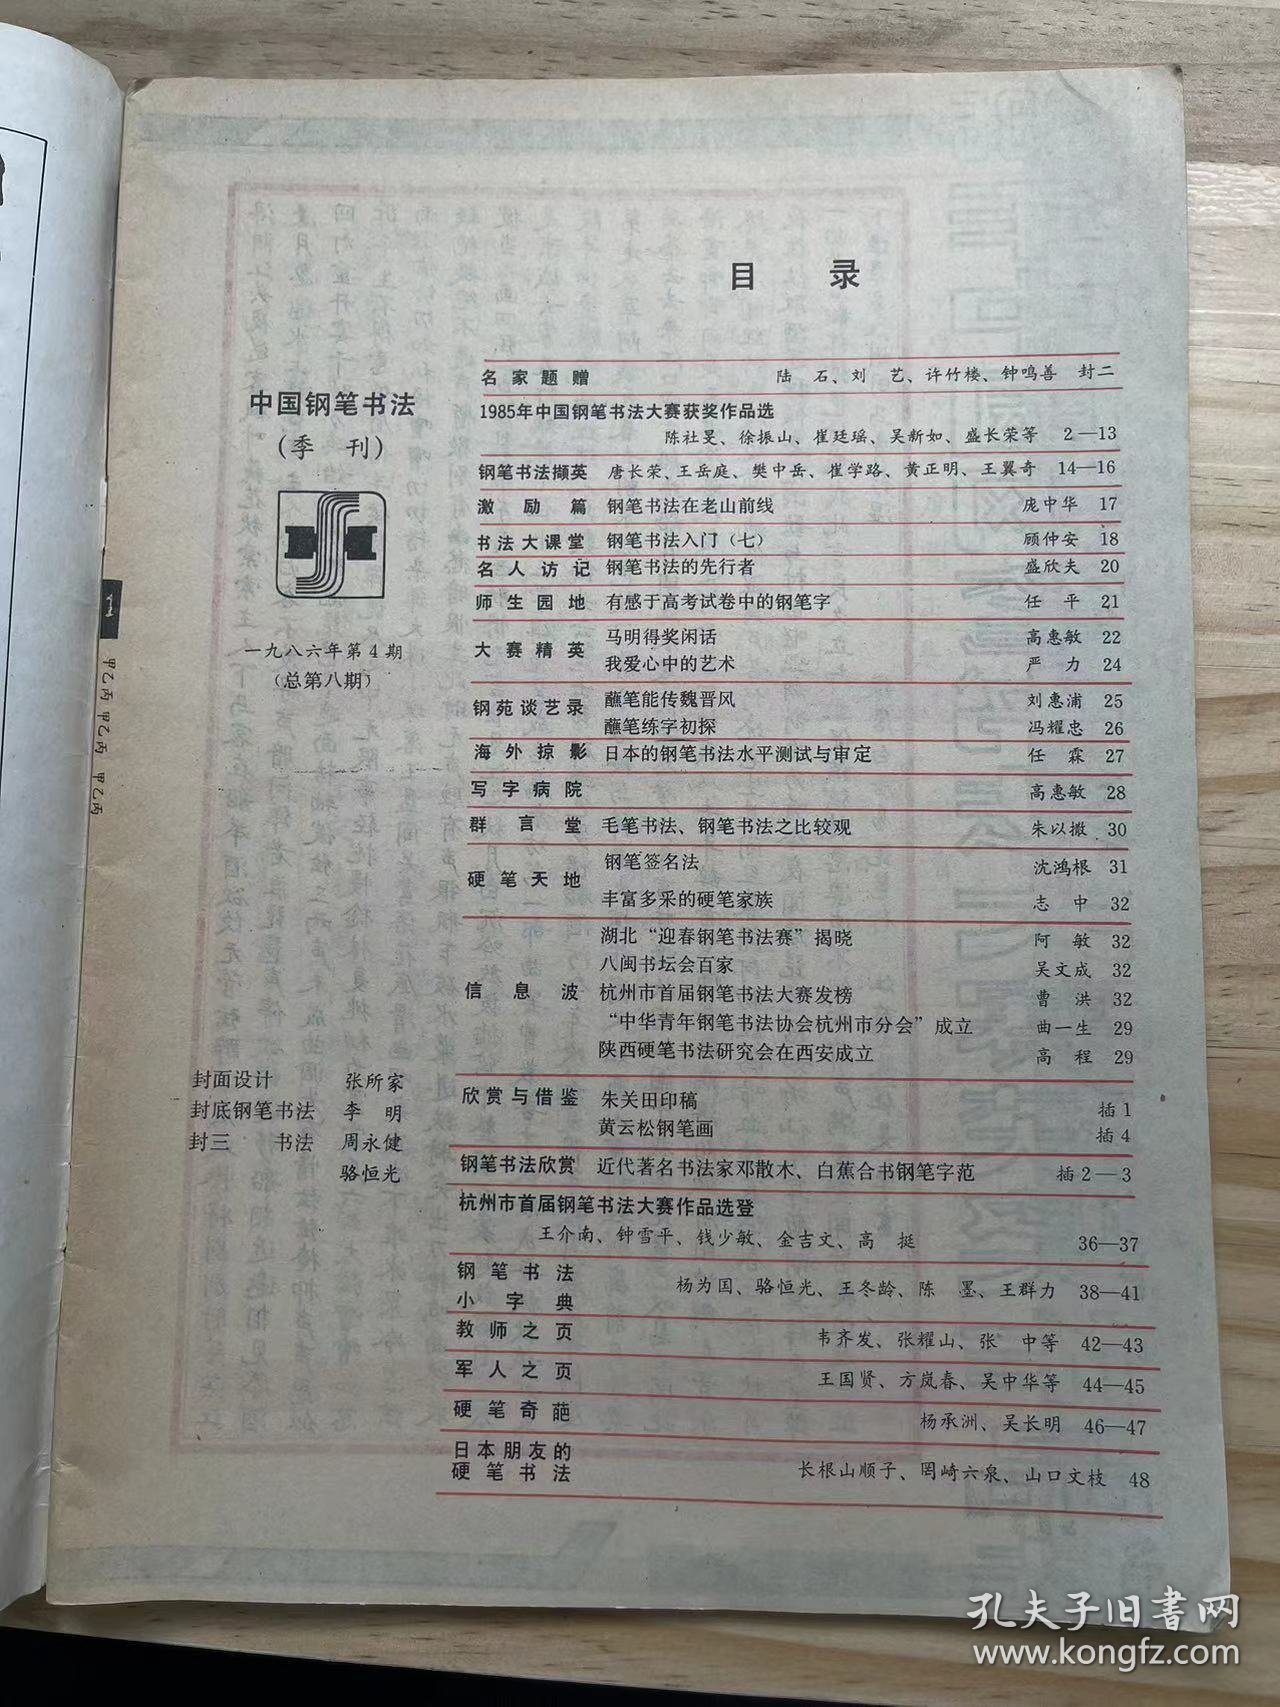 目 录
中国钢笔书法
(季 刊)
一九八六年第4期
(总第八期)
封面设计 张所家
封底钢笔书法 李 明
封三 书法 周永健
骆恒光
名家题赠 陆 石、刘 艺、许竹楼、钟鸣善 封二
1985年中国钢笔书法大赛获奖作品选
陈社旻、徐振山、崔廷瑶、吴新如、盛长荣等 2—13
钢笔书法撷英 唐长荣、王岳庭、樊中岳、崔学路、黄正明、王翼奇 14—16
激励篇 钢笔书法在老山前线 庞中华 17
书法大课堂 钢笔书法入门(七) 顾仲安 18
名人访记 钢笔书法的先行者 盛欣夫 20
师生园地 有感于高考试卷中的钢笔字 任 平 21
大赛精英 马明得奖闲话 高惠敏 22
我爱心中的艺术 严 力 24
钢苑谈艺录 蘸笔能传魏晋风 刘惠浦 25
蘸笔练字初探 冯耀忠 26
海外掠影 日本的钢笔书法水平测试与审定 任 霖 27
写字病院 高惠敏 28
群言堂 毛笔书法、钢笔书法之比较观 朱以撒 30
硬笔天地 钢笔签名法 沈鸿根 31
丰富多采的硬笔家族 志 中 32
信息波 湖北“迎春钢笔书法赛”揭晓 阿 敏 32
八闽书坛会百家 吴文成 32
杭州市首届钢笔书法大赛发榜 曹 洪 32
“中华青年钢笔书法协会杭州市分会”成立 曲一生 29
陕西硬笔书法研究会在西安成立 高 程 29
欣赏与借鉴 朱关田印稿 插1
黄云松钢笔画 插4
钢笔书法欣赏 近代著名书法家邓散木、白蕉合书钢笔字范 插2—3
杭州市首届钢笔书法大赛作品选登
王介南、钟雪平、钱少敏、金吉文、高 挺 36—37
钢笔书法
小字典 杨为国、骆恒光、王冬龄、陈 墨、王群力 38—41
教师之页 韦齐发、张耀山、张 中等 42—43
军人之页 王国贤、方岚春、吴中华等 44—45
硬笔奇葩 杨承洲、吴长明 46—47
日本朋友的
硬笔书法 长根山顺子、岡崎六泉、山口文枝 48
甲乙丙 甲乙丙 甲乙丙
孔夫子旧书网
www.kongfz.com